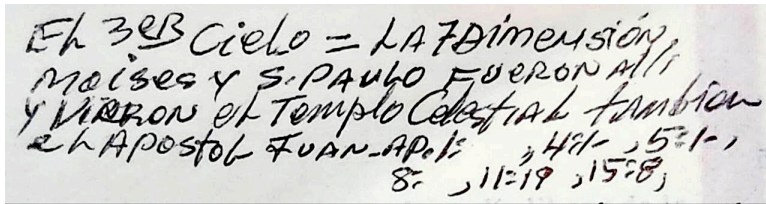 EL 3er Cielo = LA 7 Dimensión,
Moises y S. PAULO FUERON Alli
Y VIERON el Templo Celestial tambien
el APostol JUAN-AP. 1: , 4:1- , 5:1- ,
8: , 11:19 , 15:8,